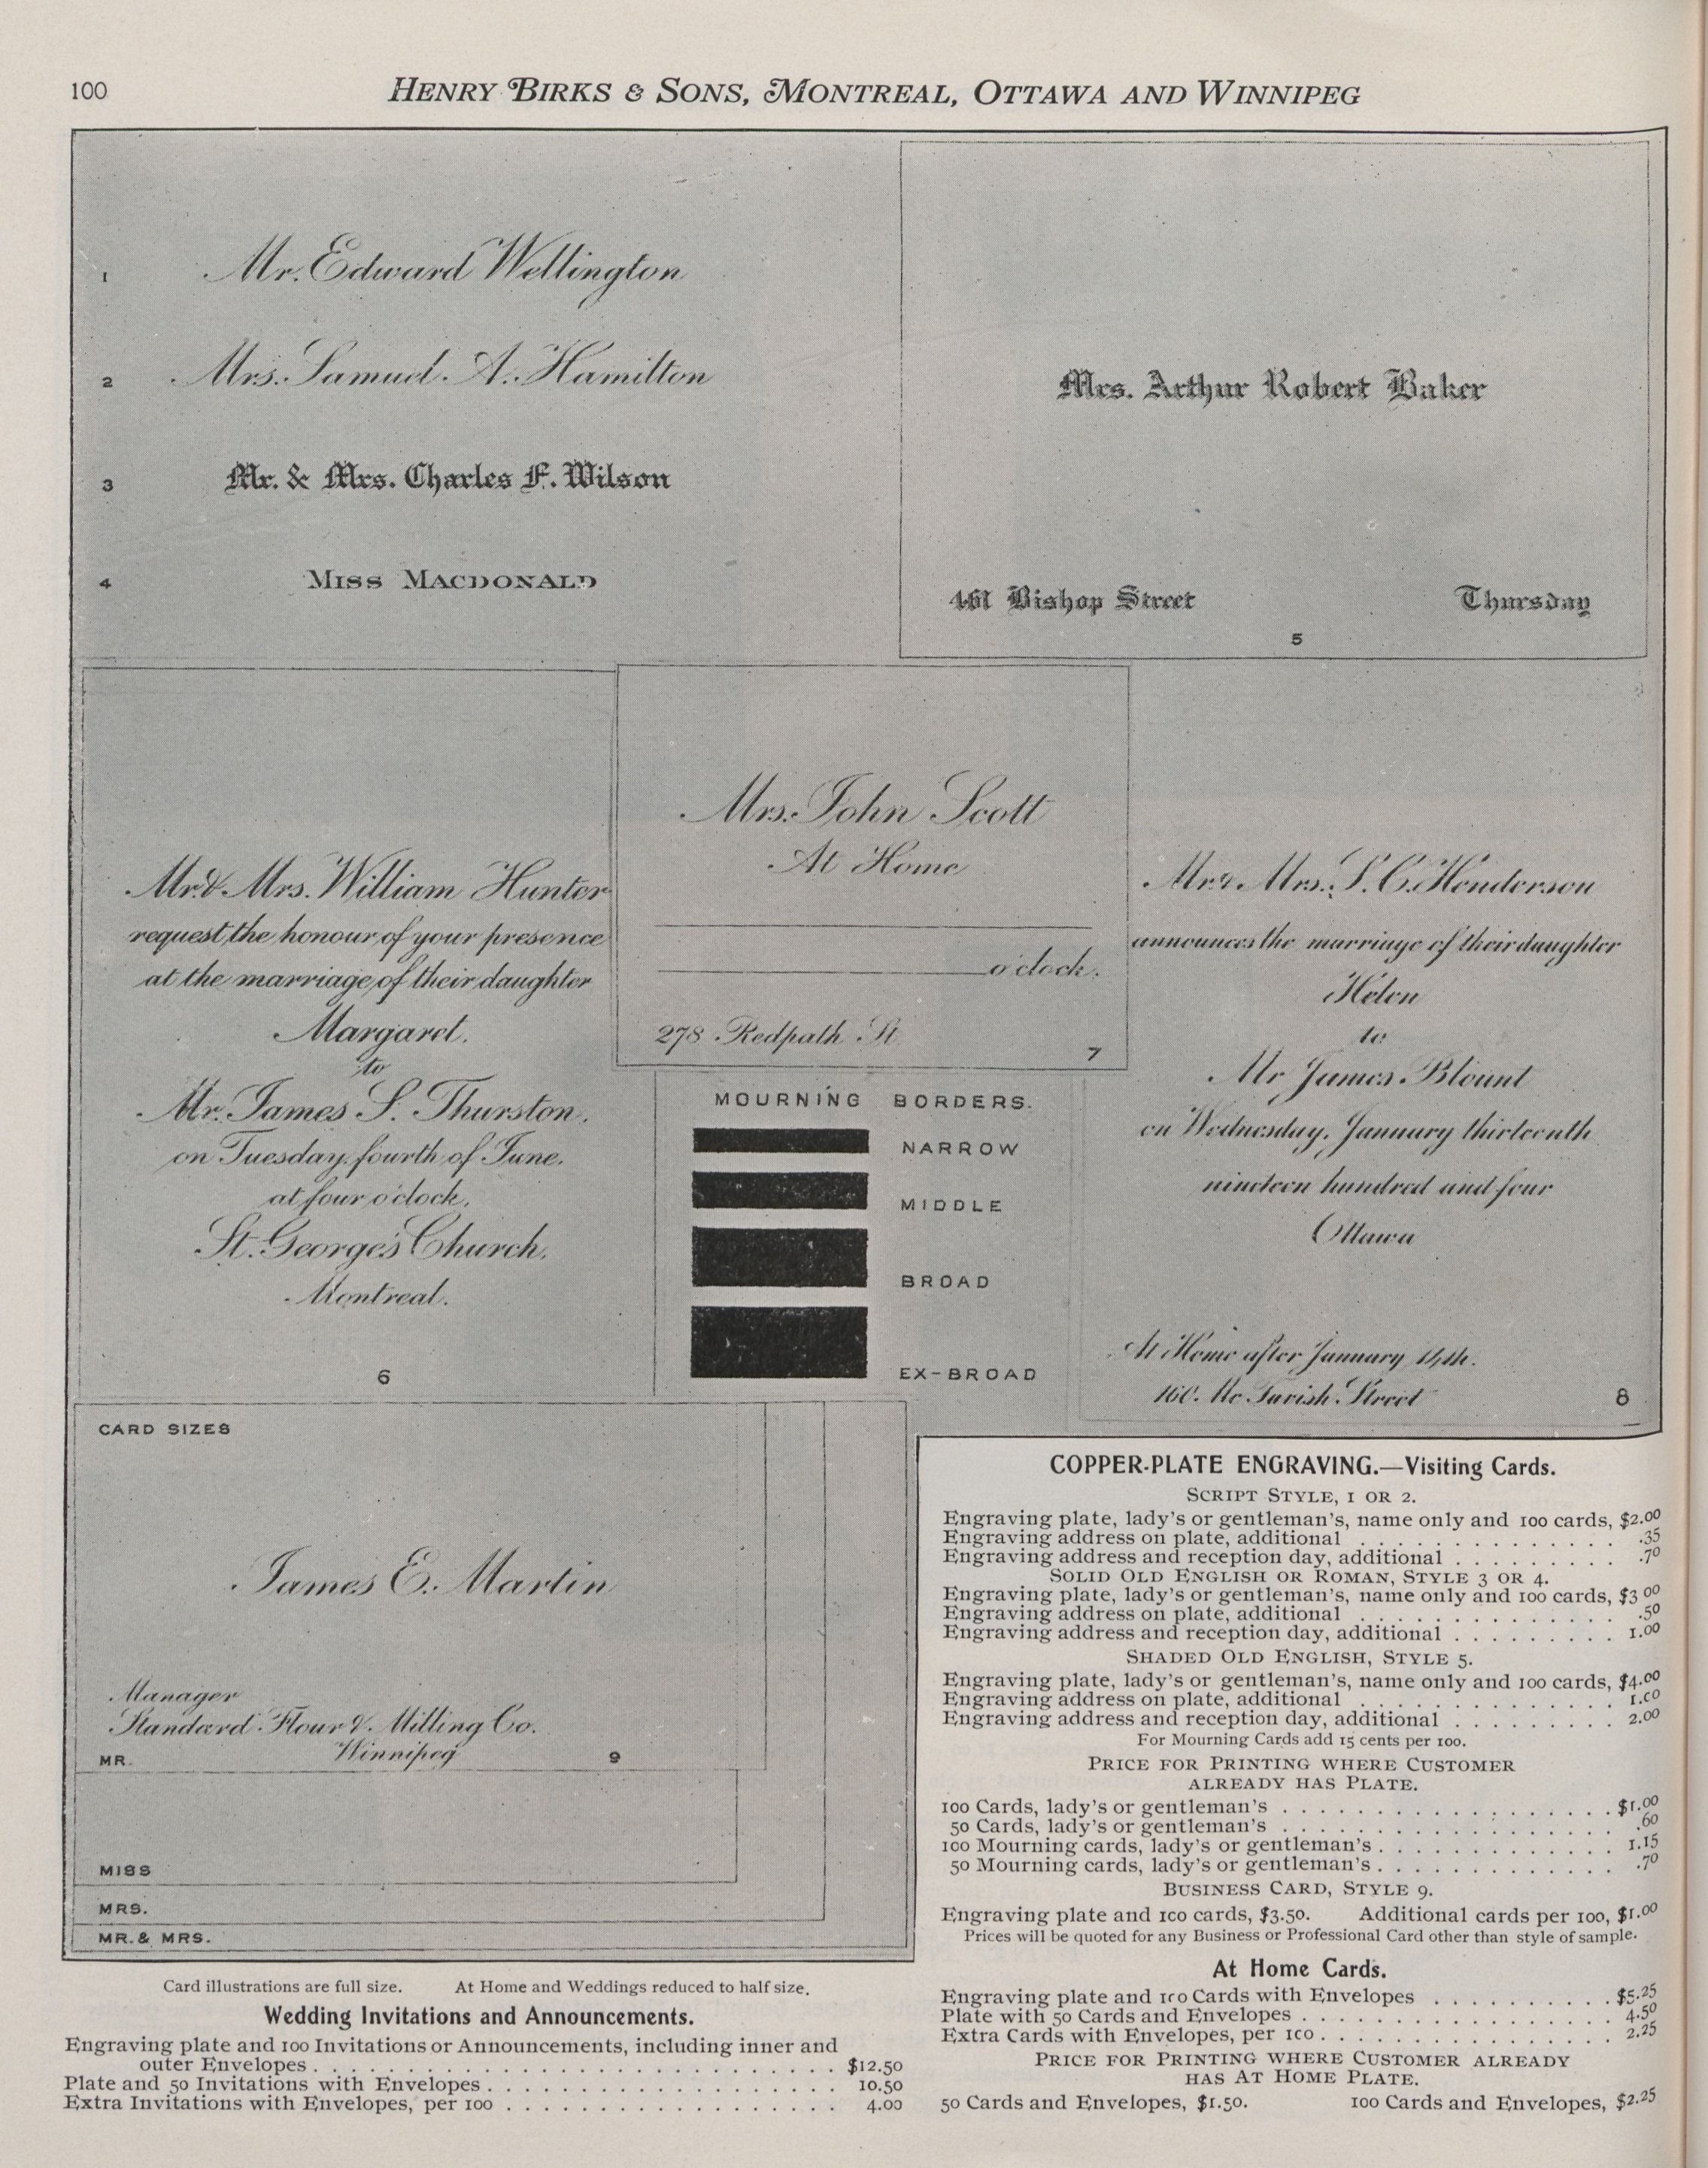 100
HENRY BIRKS & SONS, MONTREAL, OTTAWA AND WINNIPEG
1
Mr. Edward Wellington
2
Mrs. Samuel A. Hamilton
3
Mr. & Mrs. Charles F. Wilson
4
MISS MACDONALD
Mrs. Arthur Robert Baker
461 Bishop Street Thursday
5
Mr. & Mrs. William Hunter
request the honour of your presence
at the marriage of their daughter
Margaret.
to
Mr. James S. Thurston.
on Tuesday, fourth of June.
at four o'clock.
St. George's Church.
Montreal.
6
Mrs. John Scott
At Home
o'clock.
278 Redpath St
7
MOURNING BORDERS.
NARROW
MIDDLE
BROAD
EX-BROAD
Mr & Mrs. S. C. Henderson
announces the marriage of their daughter
Helen
to
Mr James Blount
on Wednesday, January thirteenth
nineteen hundred and four
Ottawa
At Home after January 14th.
160. Mc Tavish Street
8
CARD SIZES
James E. Martin
Manager
Standard Flour & Milling Co.
Winnipeg
MR.
9
MISS
MRS.
MR. & MRS.
Card illustrations are full size. At Home and Weddings reduced to half size.
Wedding Invitations and Announcements.
Engraving plate and 100 Invitations or Announcements, including inner and
outer Envelopes . . . $12.50
Plate and 50 Invitations with Envelopes . . . 10.50
Extra Invitations with Envelopes, per 100 . . . 4.00
COPPER-PLATE ENGRAVING.—Visiting Cards.
SCRIPT STYLE, 1 OR 2.
Engraving plate, lady's or gentleman's, name only and 100 cards, $2.00
Engraving address on plate, additional . . . .35
Engraving address and reception day, additional . . . .70
SOLID OLD ENGLISH OR ROMAN, STYLE 3 OR 4.
Engraving plate, lady's or gentleman's, name only and 100 cards, $3 00
Engraving address on plate, additional . . . .50
Engraving address and reception day, additional . . . 1.00
SHADED OLD ENGLISH, STYLE 5.
Engraving plate, lady's or gentleman's, name only and 100 cards, $4.00
Engraving address on plate, additional . . . 1.00
Engraving address and reception day, additional . . . 2.00
For Mourning Cards add 15 cents per 100.
PRICE FOR PRINTING WHERE CUSTOMER
ALREADY HAS PLATE.
100 Cards, lady's or gentleman's . . . $1.00
50 Cards, lady's or gentleman's . . . .60
100 Mourning cards, lady's or gentleman's . . . 1.15
50 Mourning cards, lady's or gentleman's . . . .70
BUSINESS CARD, STYLE 9.
Engraving plate and 100 cards, $3.50. Additional cards per 100, $1.00
Prices will be quoted for any Business or Professional Card other than style of sample.
At Home Cards.
Engraving plate and 100 Cards with Envelopes . . . $5.25
Plate with 50 Cards and Envelopes . . . 4.50
Extra Cards with Envelopes, per 100 . . . 2.25
PRICE FOR PRINTING WHERE CUSTOMER ALREADY
HAS AT HOME PLATE.
50 Cards and Envelopes, $1.50. 100 Cards and Envelopes, $2.25